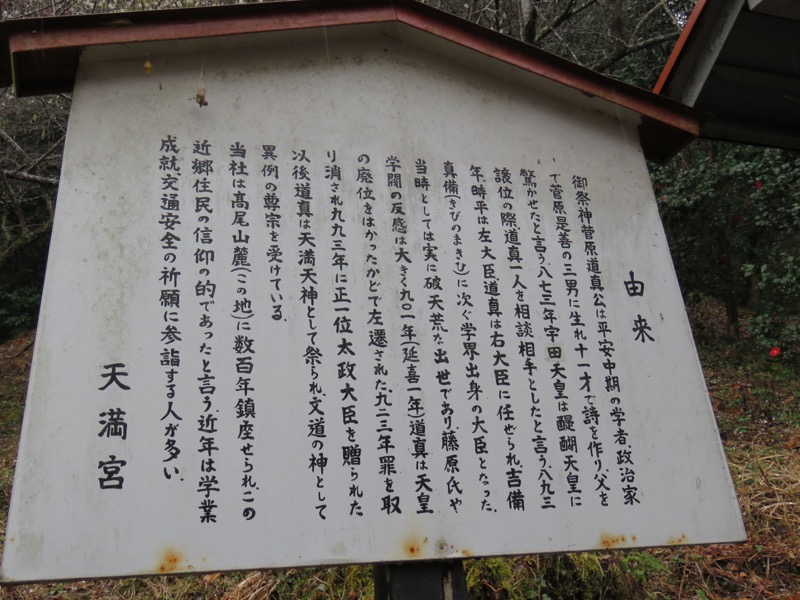 由来
御祭神菅原道真公は平安中期の学者、政治家
で菅原是善の三男に生れ十一才で詩を作り、父を
驚かせたと言う、八七三年宇田天皇は醍醐天皇に
譲位の際、道真一人を相談相手としたと言う、八九三
年、時平は左大臣、道真は右大臣に任せられ、吉備
真備(きびのまきひ)に次ぐ学界出身の大臣となった。
当時としては実に破天荒な出世であり、藤原氏や
学閥の反感は大きく九〇一年(延喜一年)道真は天皇
の廃位をはかったかどで左遷された、九二三年罪を取
り消され九九三年に正一位太政大臣を贈られた
以後道真は天満天神として祭られ、文道の神として
異例の尊宗を受けている。
当社は高尾山麓(この地)に数百年鎮座せられ、この
近郷住民の信仰の的であったと言う、近年は学業
成就、交通安全の祈願に参詣する人が多い.
天満宮